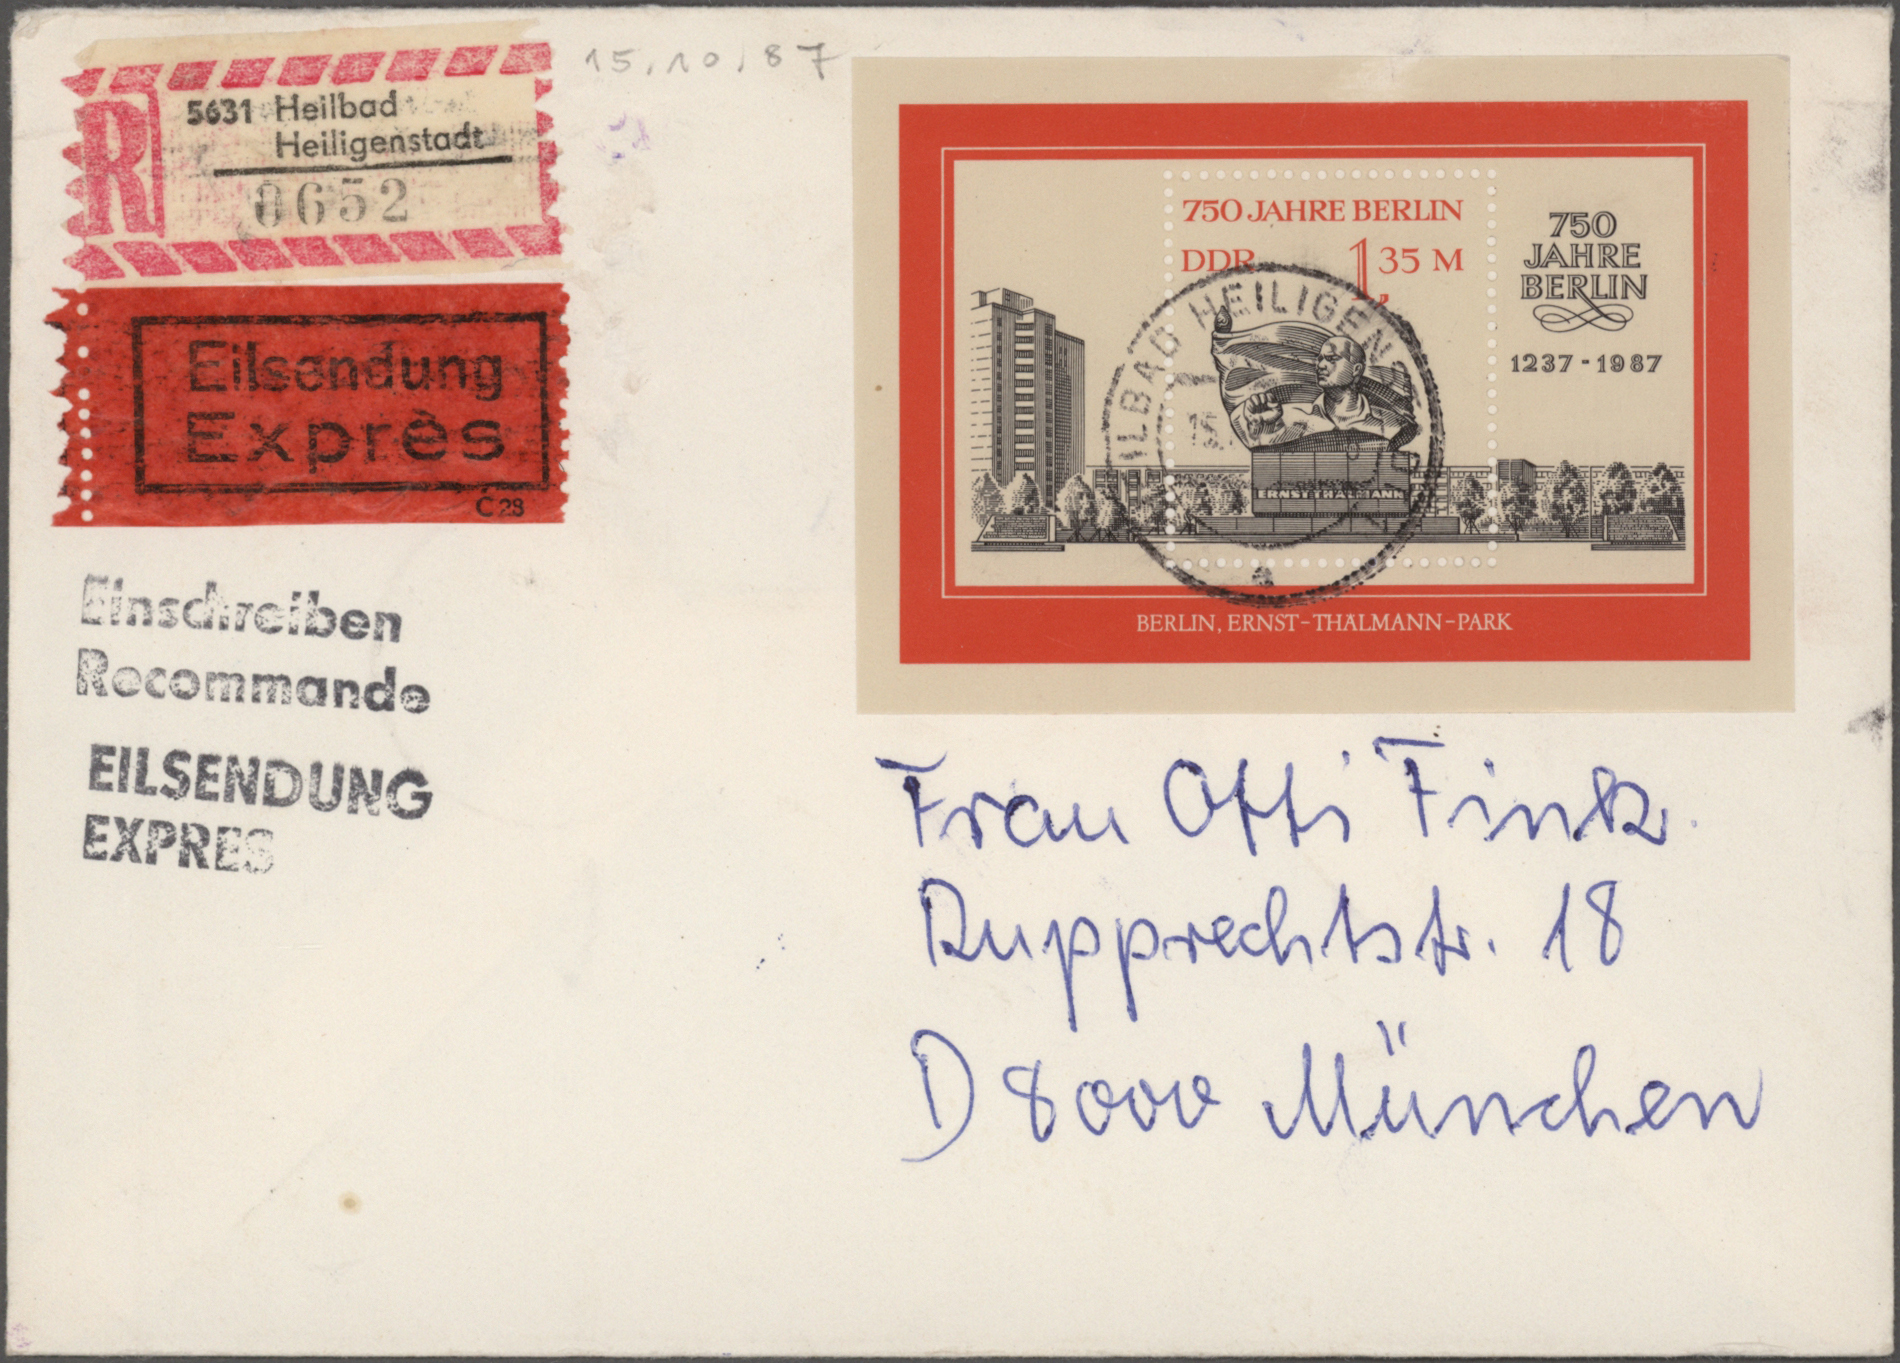 15.10.87
R
5631 Heilbad
Heiligenstadt
0652
Eilsendung
Exprès
C 28
Einschreiben
Recommande
EILSENDUNG
EXPRES
750 JAHRE BERLIN
DDR 1,35 M
750
JAHRE
BERLIN
1237 - 1987
ILBAD HEILIGENST
15.
ERNST THÄLMANN
a
BERLIN, ERNST-THÄLMANN-PARK
Frau Otti Fink
Rupprechtstr. 18
D 8000 München